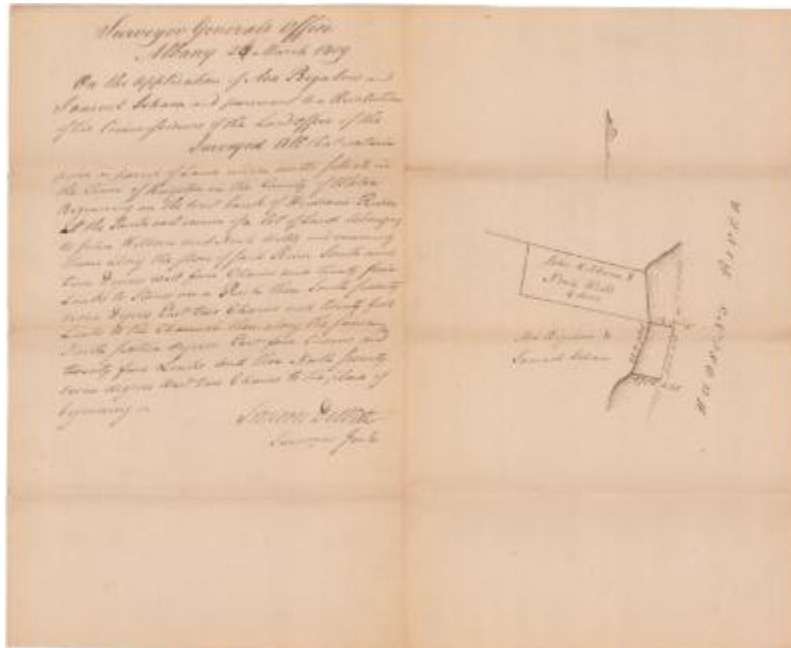 Surveyor Generals Office
Albany 24 March 1819
On the Application of Asa Bigelow and
Samuel Isham and pursuant to a Resolution
of the Commissioners of the Land office of the
Surveyed All that certain
piece or parcel of Land under water situate in
the Town of Kingston in the County of Ulster
Beginning on the West bank of Hudsons River
at the South east corner of a lot of Land belonging
to John Kilburn and Noah Wells and running
thence along the shore of said River South and
two Degrees west four Chains and twenty five
Links to Stone on a Rock then South seventy
seven Degrees East two Chains and twenty five
Links to the Channel then along the same
North degrees East four Chains and
twenty five Links and then North seventy
seven degrees West two Chains to the place of
beginning
Simeon DeWitt
Surveyor Genl.
John Kilburn &
Noah Wells
Asa Bigelow &
Samuel Isham
HUDSON'S RIVER